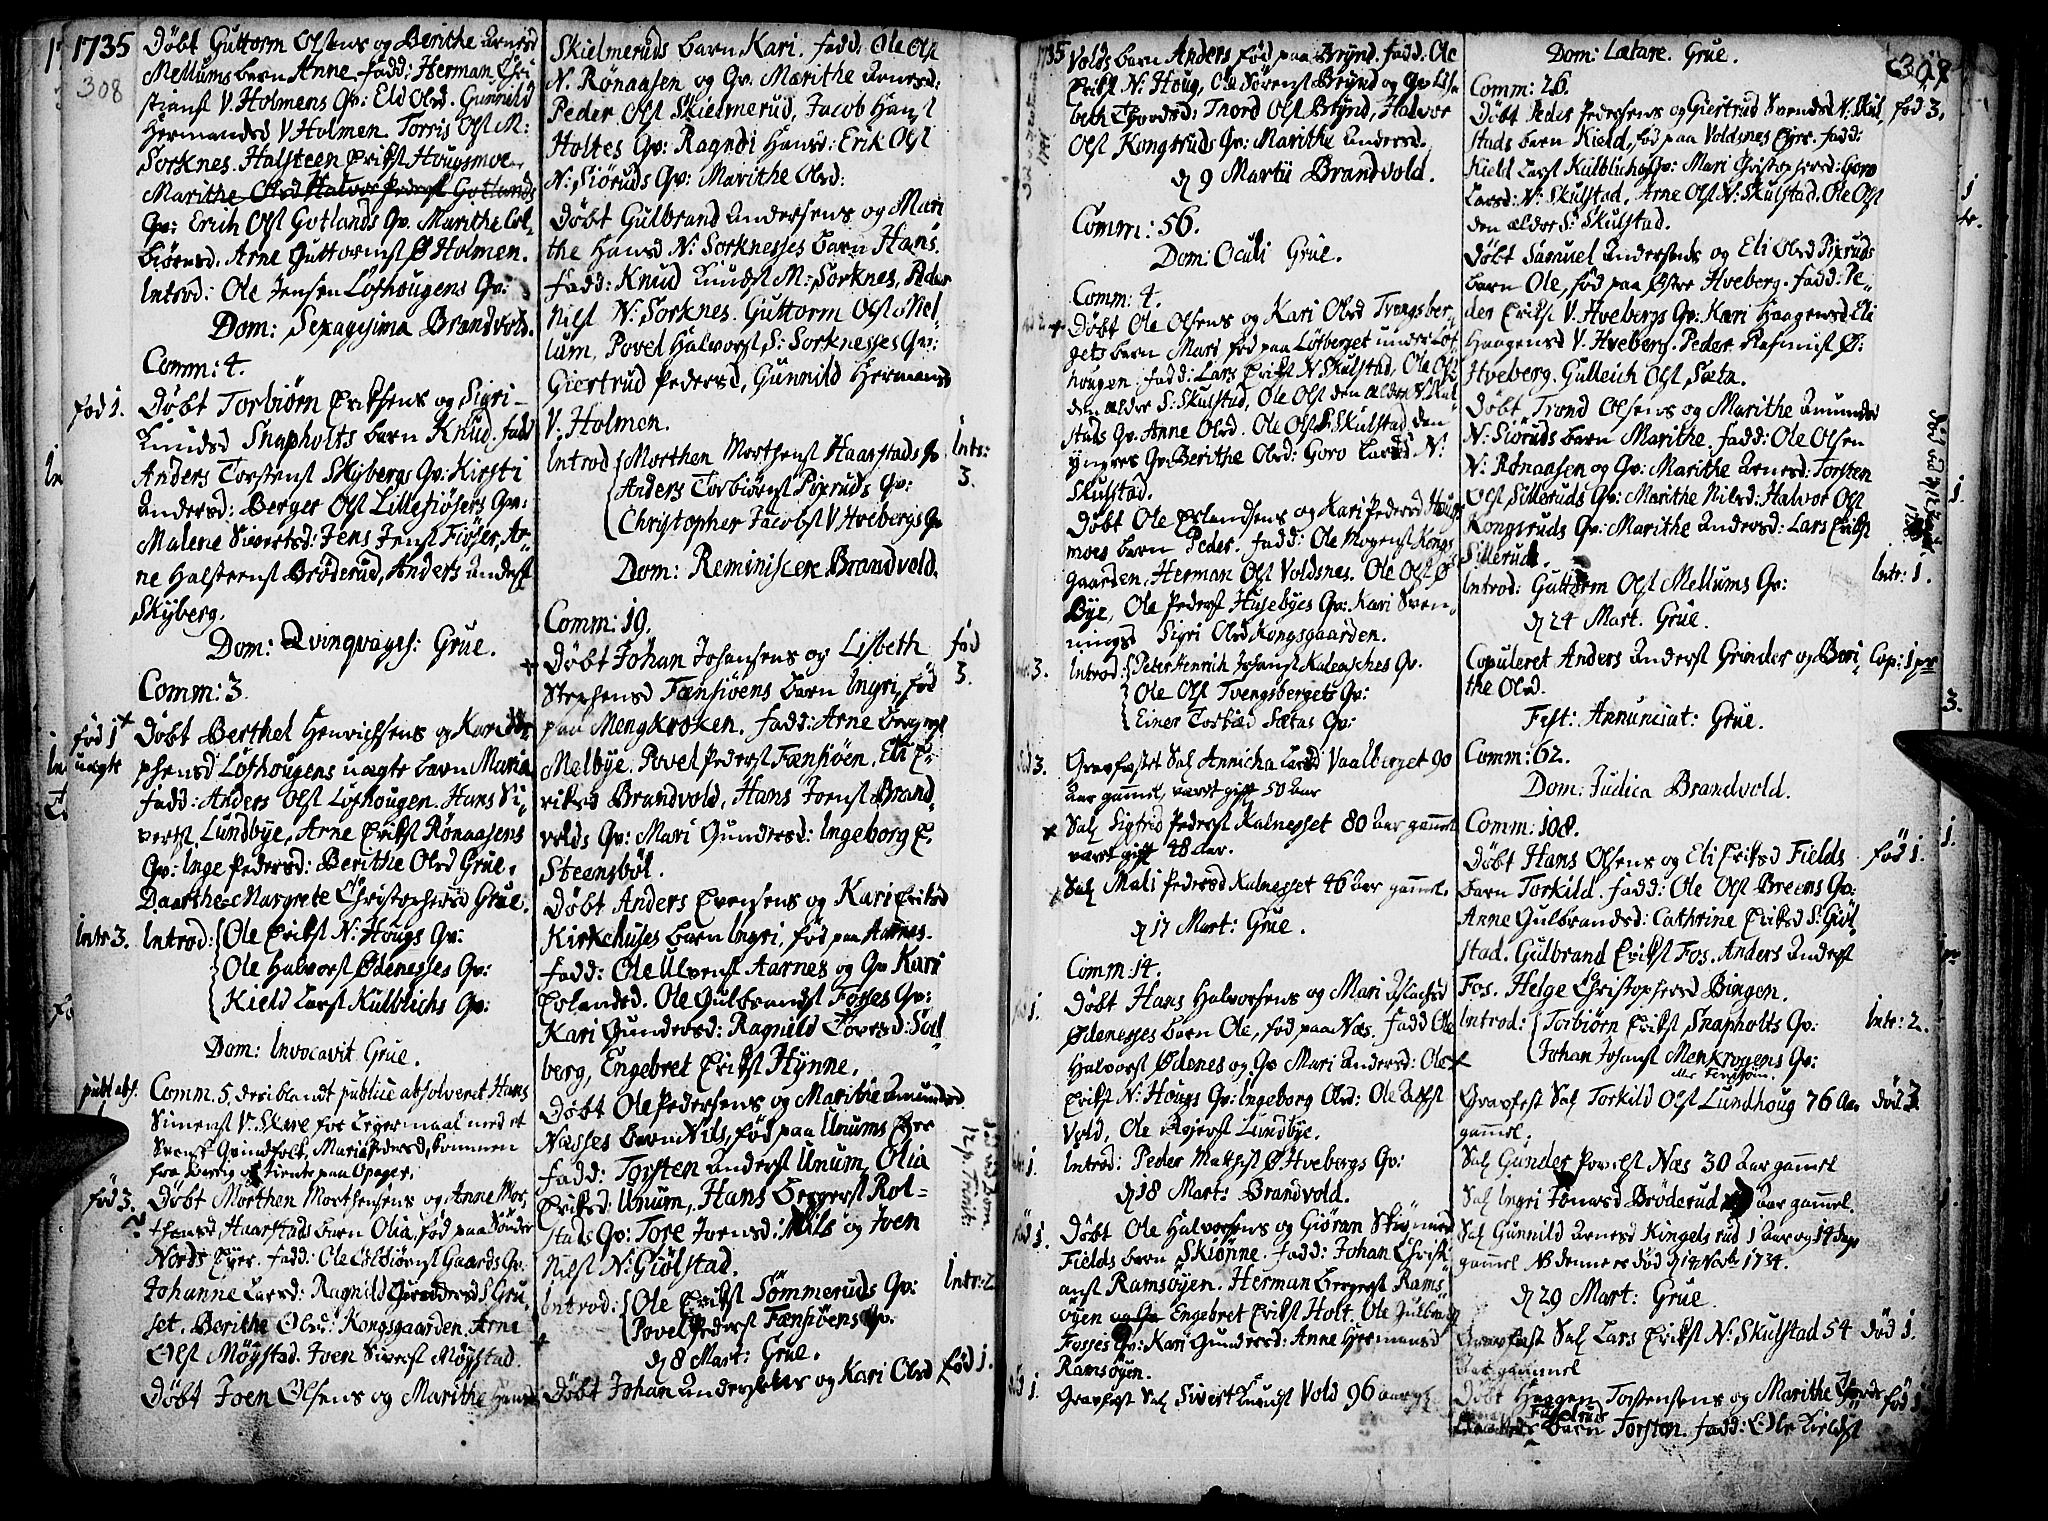 1735
308
Döbt Guttorm Olsens og Berithe Arnesd
Mellums barn Anne. fadd: Herman Chri
stiansf V. Holmens Qv: Eld Olsd. Gunnild
Hermandsd V Holmen. Torris Olsf M:
Sorknes. Halsteen Eriksf Hougsmoe
Marithe Olsd Halvor Pedersf Gotlands
Qv: Erich Olsf Gotlands Qv. Marithe Col
biörnsd. Arne Guttormsf Ø Holmen.
Introd: Ole Jensen Löfhougens Qv:
Dom: Sexagesima Brandvold.
Comm: 4.
föd 1. Döbt Torbiörn Eriksens og Sigri
Knudsd Snapholts barn Knud. fadd
Anders Torstensf Skÿbergs Qv: Kirsti
Andersd: Berger Olsf Lillesiösers Qv:
Malene Sivertsd: Jens Jensf Fiöser, Ar
ne Halsteensf Bröderud, Anders Andersf
Skÿberg.
Dom: Qvinqvages: Grue.
Comm: 3.
föd 1 uægte
Döbt Berthel Henrichsens og Kari
phensd Löfhougens uægte barn Maria
fadd: Anders Olsf Löfhougen. Hans Si
vertsf Lundbÿe, Arne Eriksf Rönaasens
Qv: Inge Pedersd: Berithe Olsd Grue,
Daarthe Margrete Christophersd Grue.
Intr 3. Introd: Ole Eriksf N: Hougs Qv:
Ole Halvorsf Ödenesses Qv:
Kield Larsf Külblichs Qv:
Dom: Invocavit Grue.
publ abs. Comm. 5, deriblandt publice absolveret Hans
1 Simensf V: Skare for Legermaal med et
Svensk Qvindfolk, Mari Pedersd, kommen
fra Sverig og tiente paa Opager.
föd 3. Döbt Morthen Morthensens og Anne Mor
thensd Haarstads barn Olia, föd paa Sönder
Nords Eÿer. fadd: Ole Colbiörnsf Gaards Qv.
Johanne Larsd: Ragnild S Gru
set. Berithe Olsd: Kongsgaarden. Arne
Olsf Möÿstad. Joen Siversf Möÿstad.
Döbt Joen Olsens og Marithe Hans
Skielmeruds barn Kari. fadd: Ole Olsf
N. Rönaasen og Qv: Marithe Arnesd:
Peder Olsf Skielmerud, Jacob Hansf
Holtes Qv: Ragndi Hansd: Erik Olsf
N: Siöruds Qv: Marithe Olsd:
Döbt Gulbrand Andersens og Mari
the Hansd N: Sorknesses barn Hans.
fadd: Knud Knudsf M: Sorknes, Peder
Nilsf N: Sorknes. Guttorm Olsf Mel
lum, Povel Halvorsf S: Sorknesses Qv:
Giertrud Pedersd, Gunnild Hermansd
V. Holmen.
Introd Morthen Morthensf Haarstads Qv Intr:
Anders Torbiörnsf Pixruds Qv: 3.
Christopher Jacobsf V Hvebergs Qv
Dom: Reminiscere Brandvold.
Comm: 19.
Döbt Johan Johansens og Lisbeth föd
Stephensd Fænsiöens barn Ingri, föd 3.
paa Mengkroken. fadd: Arne
Melbÿe. Povel Pedersf Fænsiöen. Eli E
riksd Brandvold, Hans Joensf Brand
volds Qv: Mari Gundersd: Ingeborg E.
Steensböl.
Döbt Anders Evensens og Kari Eriksd
Kirkehuses barn Ingri, föd paa Aarnes.
fadd: Ole Ulvensf Aarnes og Qv Kari
Erlandsd. Ole Gulbrandsf Fosses Qv:
Kari Gundersd: Ragnild Torersd: Sol
berg, Engebret Eriksf Hÿnne.
Döbt Ole Pedersens og Marithe Amundsd
Næsses barn Nils, föd paa Unums Eÿer
fadd: Torsten Andersf Unum, Olia
Eriksd: Unum, Hans Bergersf Rol
stads Qv: Tore Joensd: Nils og Joen
Nilsf N: Giölstad.
Introd: Ole Eriksf Sömmeruds Qv: Intr: 2
Povel Pedersf Fænsiöens Qv.
d 8 Mart: Grue.
Döbt Johan Andersens og Kari Olsd föd 1.
1735
Volds barn Anders föd paa Brÿnd. fadd: Ole
Eriksf N: Houg, Ole Sörensf Brÿnd og Qv Lis
beth Thordsd: Thord Olsf Brÿnd, Halvor
Olsf Kongsruds Qv: Marithe Andersd.
d 9 Martii Brandvold.
Comm: 56.
Dom: Oculi Grue.
Comm: 4.
Döbt Ole Olsens og Kari Olsd Tvengsber
gets barn Mari föd paa Löfberget under Löf
hougen. fadd: Lars Eriksf N: Skulstad, Ole Olsf
den ældre S: Skulstad, Ole Olsf den ældre N: Skul
stads Qv: Anne Olsd. Ole Olsf S Skulstad den
ÿngres Qv: Berithe Olsd: Goro Larsd N:
Skulstad.
Döbt Ole Erlandsens og Kari Pedersd Hougs
moes barn Peder. fadd: Ole Mogensf Kongs
gaarden, Herman Olsf Voldsnes. Ole Olsf Ø
Bÿe, Ole Pedersf Husebÿes Qv: Kari Sven
ningsd Sigri Olsd Kongsgaarden.
3. Introd: Peter Henrich Johansf Kalnæsches Qv.
Ole Olsf Tvengsbergets Qv:
Einer Torbiö Sætas Qv:
3. Gravfæstet Sal Annicha Larsd Vaalberget 90
Aar gammel, været gift 50 Aar
Sal Sigfrid Pedersf Kalnesset 80 Aar gammel
været gift 48 Aar.
Sal Mali Pedersd Kalnesset 46 Aar gammel.
d 17 Mart: Grue.
Comm: 14.
1. Döbt Hans Halvorsens og Mari Aslacsd
Ödenesses barn Ole, föd paa Næs. fadd Ole
Halvorsf Ödenes og Qv Mari Andersd: Ole
Eriksf N: Hougs Qv: Ingeborg Olsd: Ole
Vold, Ole Rojersf Lundbÿe.
1. Introd: Peder Mathisf Ø Hvebergs Qv:
d 18 Mart: Brandvold.
föd 1. Döbt Ole Halvorsens og Giöran
Fields barn Skiönne. fadd: Johan Christi
ansf Ramsöÿen. Herman Bergersf Rams
öÿen og Qv Engebret Eriksf Holt. Ole Gulbrandsf
Fosses Qv: Kari Gundersd: Anne Hermansd
Ramsöÿen.
1. Gravfæst Sal Sivert Knudsf Vold 96 aar gl
Dom: Lætare. Grue. 309
Comm: 26.
Döbt Peder Pedersens og Giertrud Svendsd N: Skul föd 3.
stads barn Kield, föd paa Voldsnes Eÿer. fadd:
Kield Larsf Kulblichs Qv: Mari Christophersd: Goro
Larsd: N: Skulstad, Arne Olsf N: Skulstad. Ole Olsf
den ældre S: Skulstad.
Döbt Samuel Andersens og Eli Olsd Pixruds
barn Ole, föd paa Østre Hveberg. fadd: Pe
der Eriksf V. Hvebergs Qv: Kari Haagensd Eli
Haagensd V. Hveberg. Peder Rasmusf Ø:
Hveberg. Gulleich Olsf Sæta.
Döbt Trond Olsens og Marithe Amundsd
N: Siöruds barn Marithe. fadd: Ole Olsen
N: Rönaasen og Qv: Marithe Arnesd: Torsten
Olsf Silleruds Qv: Marithe Nilsd: Halvor Olsf
Kongsruds Qv: Marithe Andersd: Lars Eriksf
Sillerud.
Introd: Guttorm Olsf Mellums Qv: Intr: 1.
d 24 Mart. Grue.
Copuleret Anders Andersf Grinder og Beri Cop: 1 pr
the Olsd.
Fest: Annunciat: Grue.
Comm: 62.
Dom: Judica Brandvold.
Comm: 108.
Döbt Hans Olsens og Eli Eriksd Fields föd 1.
barn Torkild. fadd: Ole Olsf Breens Qv:
Anne Gulbrandsd: Cathrine Eriksd S: Giöl
stad. Gulbrand Eriksf Fos. Anders Andersf
Fos. Helge Christophersd Bingen.
Introd: Torbiörn Eriksf Snapholts Qv: Intr: 2.
Johan Johansf Menkrogens Qv:
eller Fensjöen.
Gravfest Sal Torkild Olsf Lundhoug 76 Aar Död 3
gammel.
Sal Gunder Povelsf Næs 30 Aar gammel
Sal Ingri Jonasd Bröderud Aar gammel.
Sal Gunnild Arnesd Kingelsrud 1 Aar og 14 Dage
gammel. NB denne er död d 19 Novbr 1734.
d 29 Mart: Grue.
Gravfæst Sal Lars Eriksf N: Skulstad 54 Död 1.
Aar gammel
Döbt Haagen Torstensens og Marithe föd 1
barn Torsten. fadd: Ole Kieldsf